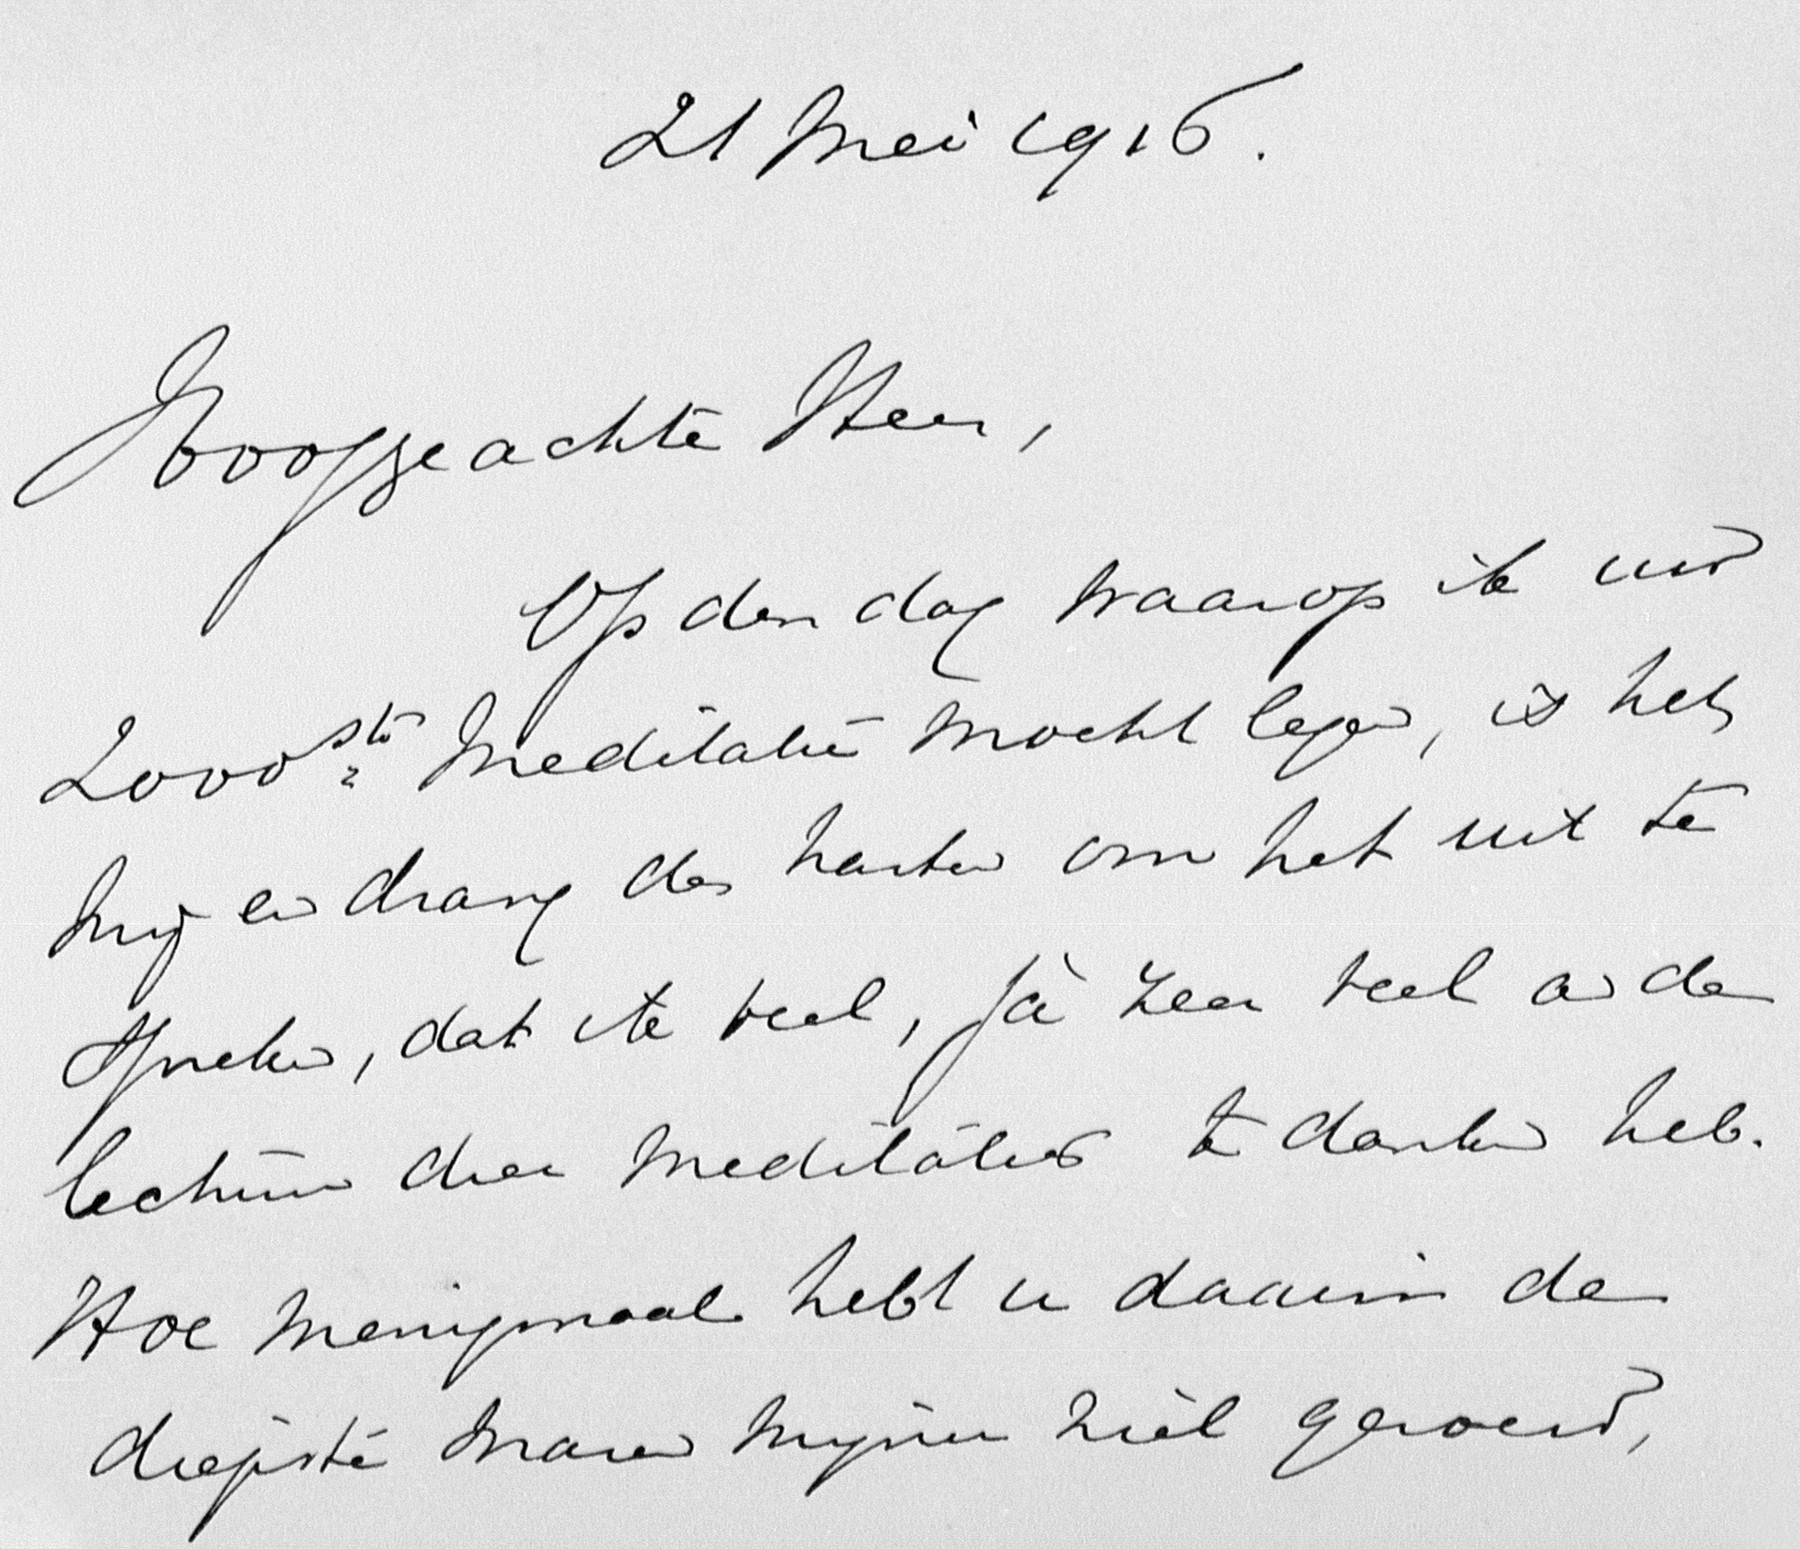 21 Mei 1916.
Hooggeachte Heer,
Op den dag waarop ik uw
2000ste Meditatie mocht lezen, is het
mij en drang des harten om het uit te
spreken, dat ik veel, ja zeer veel aan de
lectuur dier meditaties te danken heb.
Hoe menigmaal hebt u daarin de
diepste snaren mijner ziel geroerd,